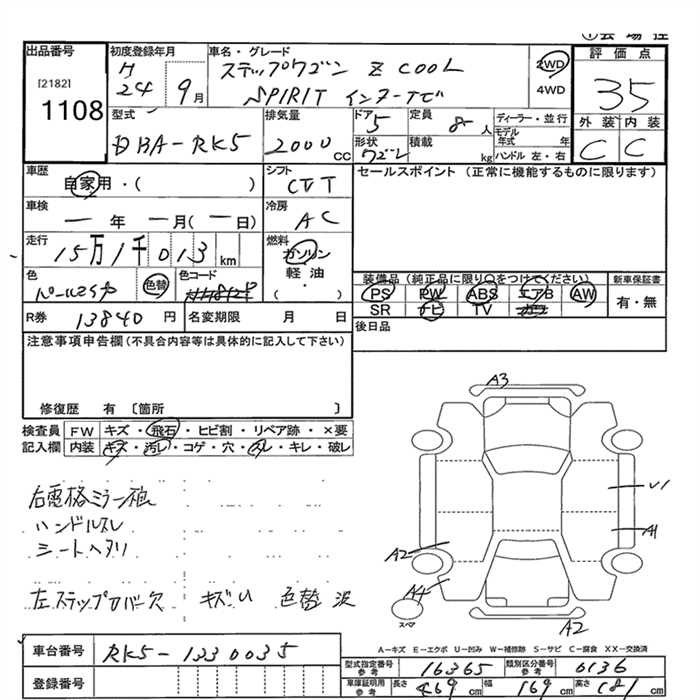 出品番号 初度登録年月 車名・グレード
[2182] 1108
H 24 9月
ステップワゴン Z COOL
SPIRIT インターナビ
2WD
4WD
評価点
35
外装 内装
C C
型式 排気量 ドア 定員 ディーラー・並行
DBA-RK5 2000CC 5 8人
モデル年式 年
形状 積載 kg ハンドル 左・右
ワゴン
車歴 シフト セールスポイント(正常に機能するものに限ります)
自家用・( ) CVT
車検 冷房
一年 一月(一日) AC
走行 燃料
15万1千013km ガソリン
軽油
・
( )
色 色替 色コード
パールエシャ
装備品(純正品に限り○をつけてください) 新車保証書
PS PW ABS エアB AW 有・無
SR ナビ TV
R券 13840円 名変期限 月 日 後日品
注意事項申告欄(不具合内容等は具体的に記入して下さい)
修復歴 有〔箇所 〕
検査員 FW キズ・飛石・ヒビ割・リペア跡・×要
記入欄 内装 キズ・汚レ・コゲ・穴・スレ・キレ・破レ
右電格ミラー
ハンドルスレ
シートヘタリ
左ステップカバー欠 キズU 色替
A3
U1
A1
A2
A4
スペア
A2
A-キズ E-エクボ U-凹み W-補修跡 S-サビ C-腐食 XX-交換済
車台番号 RK5-1330035
登録番号
型式指定番号 参考 16365 類別区分番号 参考 0136
車庫証明用 参考 長さ 469cm 幅 169cm 高さ 181cm